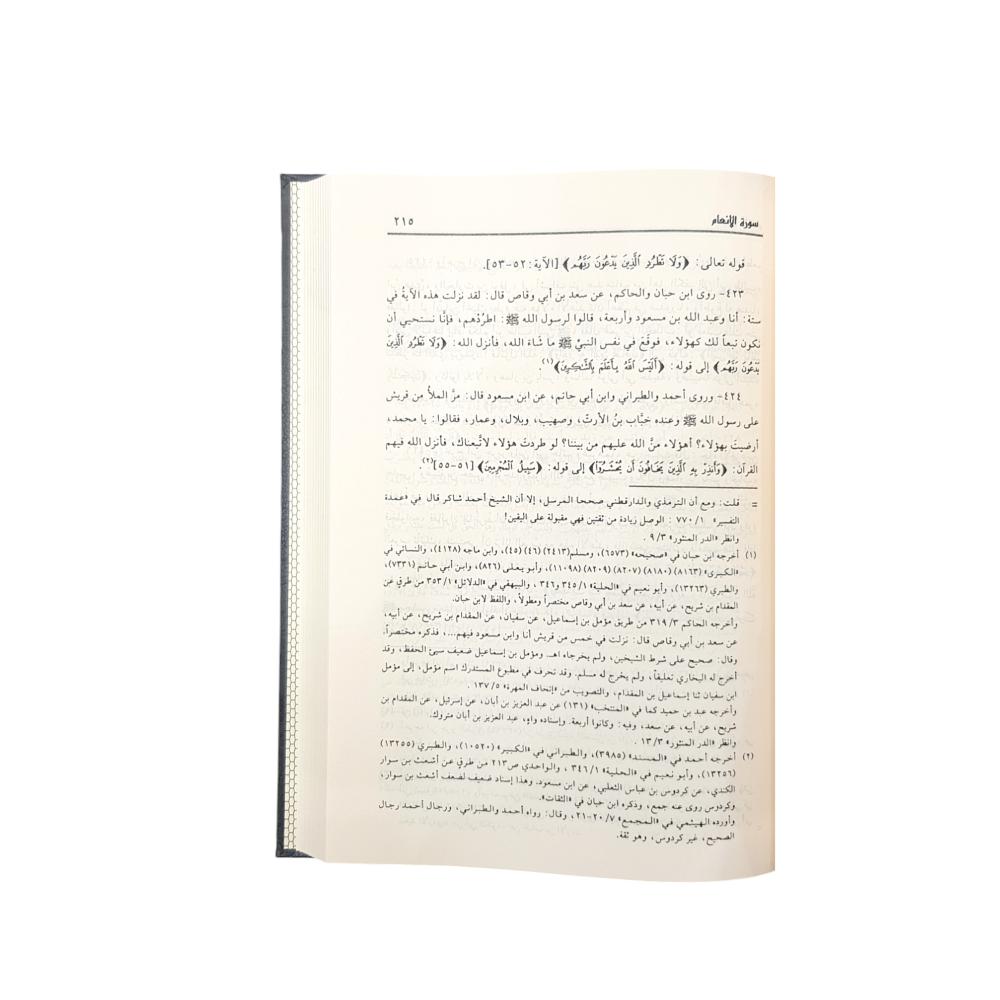 سورة الأنعام ٢١٥
قوله تعالى: ﴿وَلَا تَطْرُدِ الَّذِينَ يَدْعُونَ رَبَّهُم﴾ [الآية: ٥٢-٥٣].
٤٢٣- روى ابن حبان والحاكم، عن سعد بن أبي وقاص قال: لقد نزلت هذه الآيةُ في
ستة: أنا وعبد الله بن مسعود وأربعة، قالوا لرسول الله ﷺ: اطردْهم، فإنَّا نستحيي أن
نكون تبعاً لك كهؤلاء، فوقَعَ في نفس النبيِّ ﷺ ما شَاءَ الله، فأنزل الله: ﴿وَلَا تَطْرُدِ الَّذِينَ
يَدْعُونَ رَبَّهُم﴾ إلى قوله: ﴿أَلَيْسَ اللَّهُ بِأَعْلَمَ بِالشَّاكِرِينَ﴾(١).
٤٢٤- وروى أحمد والطبراني وابن أبي حاتم، عن ابن مسعود قال: مرَّ الملأُ من قريش
على رسول الله ﷺ وعنده خبَّاب بنُ الأرتّ، وصهيب، وبلال، وعمار، فقالوا: يا محمد،
أرضيتَ بهؤلاء؟ أهؤلاء منَّ الله عليهم من بيننا؟ لو طردتَ هؤلاء لاتَّبعناك، فأنزل الله فيهم
القرآن: ﴿وَأَنذِرْ بِهِ الَّذِينَ يَخَافُونَ أَن يُحْشَرُوا﴾ إلى قوله: ﴿سَبِيلُ الْمُجْرِمِينَ﴾ [٥١-٥٥](٢).
= قلت: ومع أن الترمذي والدارقطني صححا المرسل، إلا أن الشيخ أحمد شاكر قال في «عمدة
التفسير» ١/ ٧٧٠ : الوصل زيادة من ثقتين فهي مقبولة على اليقين!
وانظر «الدر المنثور» ٣/ ٩ .
(١) أخرجه ابن حبان في «صحيحه» (٦٥٧٣)، ومسلم(٢٤١٣) (٤٦) (٤٥)، وابن ماجه (٤١٢٨)، والنسائي في
«الكبرى» (٨١٦٣) (٨١٨٠) (٨٢٠٧) (٨٢٠٩) (١١٠٩٨)، وأبو يعلى (٨٢٦)، وابن أبي حاتم (٧٣٣١)،
والطبري (١٣٢٦٣)، وأبو نعيم في «الحلية» ١/ ٣٤٥ و٣٤٦ ، والبيهقي في «الدلائل» ١/ ٣٥٣ من طرقٍ عن
المقدام بن شريح، عن أبيه، عن سعد بن أبي وقاص مختصراً ومطولاً، واللفظ لابن حبان.
وأخرجه الحاكم ٣/ ٣١٩ من طريق مؤمل بن إسماعيل، عن سفيان، عن المقدام بن شريح، عن أبيه،
عن سعد بن أبي وقاص قال: نزلت في خمس من قريش أنا وابن مسعود فيهم...، فذكره مختصراً.
وقال: صحيح على شرط الشيخين، ولم يخرجاه اهـ. ومؤمل بن إسماعيل ضعيف سيئ الحفظ، وقد
أخرج له البخاري تعليقاً، ولم يخرج له مسلم. وقد تحرف في مطبوع المستدرك اسم مؤمل، إلى مؤمل
ابن سفيان ثنا إسماعيل بن المقدام، والتصويب من «إتحاف المهرة» ٥/ ١٣٧ .
وأخرجه عبد بن حميد كما في «المنتخب» (١٣١) عن عبد العزيز بن أبان، عن إسرئيل، عن المقدام بن
شريح، عن أبيه، عن سعد، وفيه: وكانوا أربعة. وإسناده واهٍ، عبد العزيز بن أبان متروك.
وانظر «الدر المنثور» ٣/ ١٣ .
(٢) أخرجه أحمد في «المسند» (٣٩٨٥)، والطبراني في «الكبير» (١٠٥٢٠)، والطبري (١٣٢٥٥)
(١٣٢٥٦)، وأبو نعيم في «الحلية» ١/ ٣٤٦ ، والواحدي ص٢١٣ من طرقٍ عن أشعث بن سوار
الكندي، عن كردوس بن عباس الثعلبي، عن ابن مسعود. وهذا إسناد ضعيف لضعف أشعث بن سوار،
وكردوس روى عنه جمع، وذكره ابن حبان في «الثقات».
وأورده الهيثمي في «المجمع» ٧/ ٢٠-٢١، وقال: رواه أحمد والطبراني، ورجال أحمد رجال
الصحيح، غير كردوس، وهو ثقة.